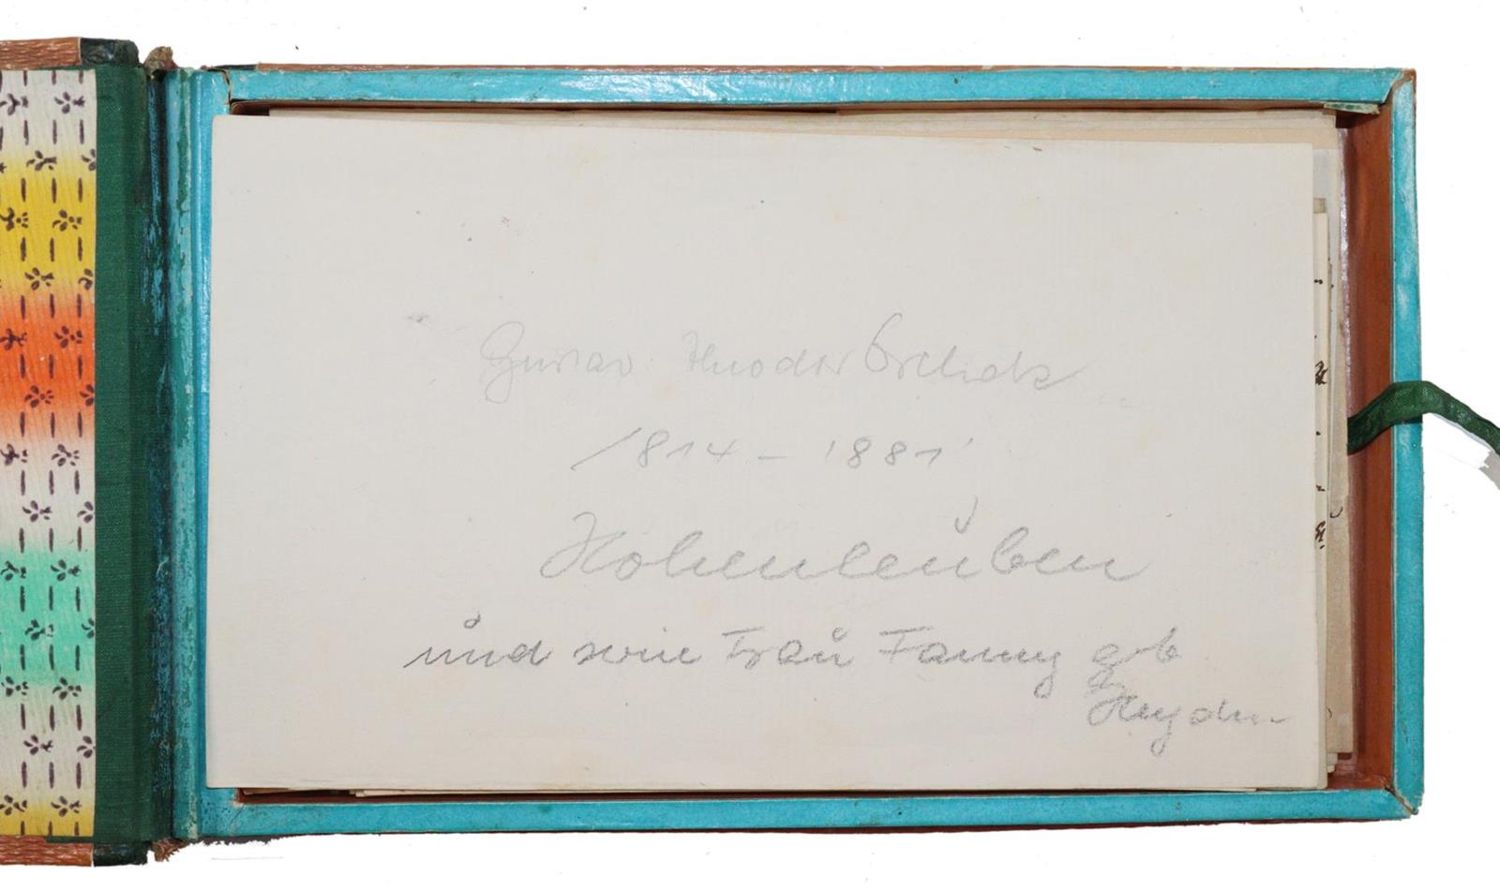 Gustav Theodor
1814 – 1881
Hohenleuben
und seine Frau Fanny gb
Heyden